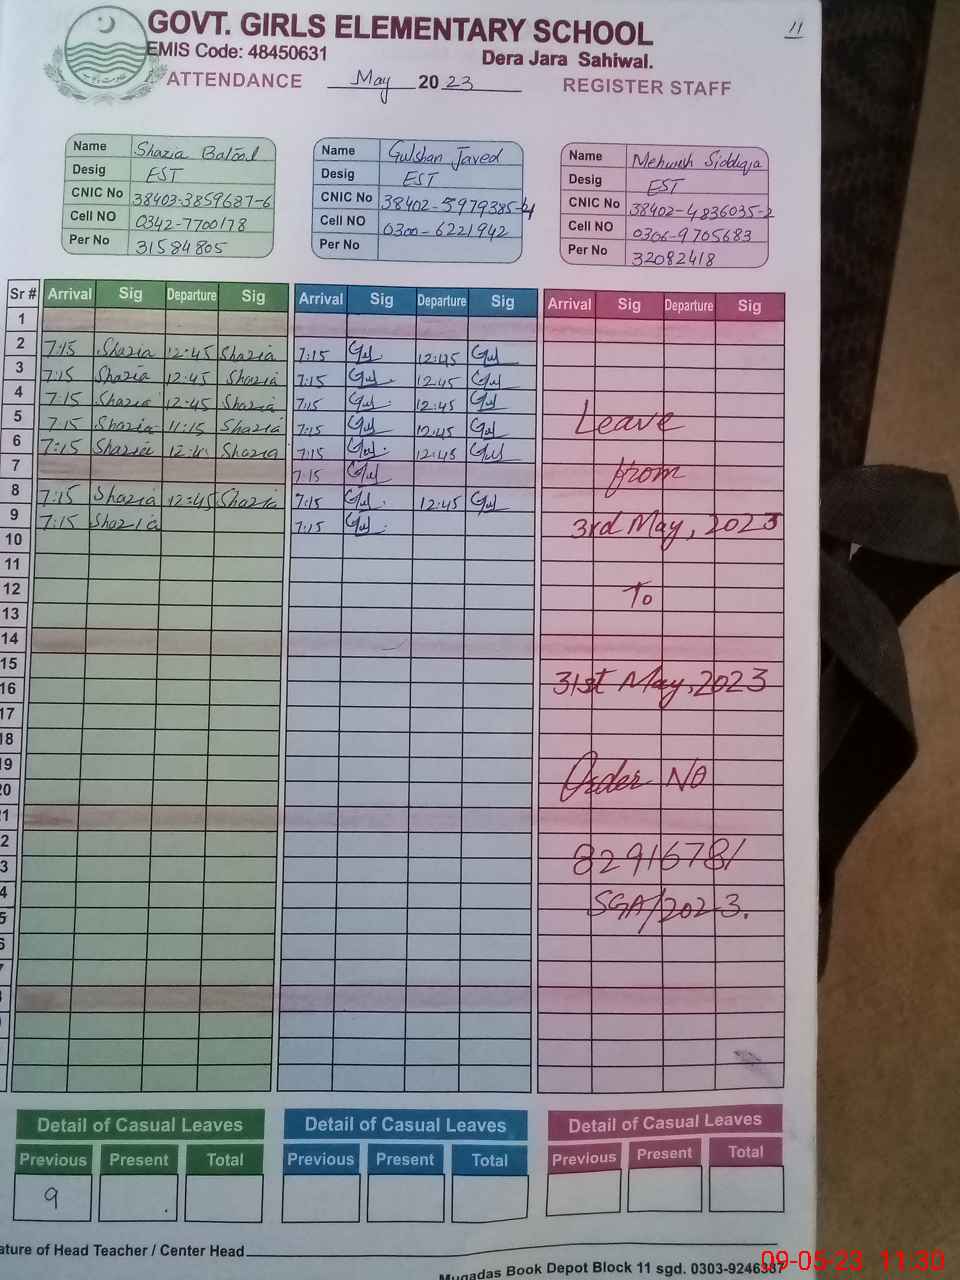 11
GOVT. GIRLS ELEMENTARY SCHOOL
EMIS Code: 48450631 Dera Jara Sahiwal.
ATTENDANCE May 2023 REGISTER STAFF
Name Shazia Batool
Desig EST
CNIC No 38403-3859687-6
Cell NO 0342-7700178
Per No 31584805
Name Gulshan Javed
Desig EST
CNIC No 38402-5979385-4
Cell NO 0300-6221942
Per No
Name Mehwush Siddiqa
Desig EST
CNIC No 38402-4836035-2
Cell NO 0306-9705683
Per No 32082418
Sr # Arrival Sig Departure Sig Arrival Sig Departure Sig Arrival Sig Departure Sig
1
2 7:15 Shazia 12:45 Shazia 7:15 Gul 12:45 Gul
3 7:15 Shazia 12:45 Shazia 7:15 Gul 12:45 Gul
4 7:15 Shazia 12:45 Shazia 7:15 Gul 12:45 Gul
5 7:15 Shazia 11:15 Shazia 7:15 Gul 12:45 Gul
6 7:15 Shazia Shazia 7:15 Gul 12:45 Gul
7 7:15 Gul
8 7:15 Shazia 12:45 Shazia 7:15 Gul 12:45 Gul
9 7:15 Shazia 7:15 Gul
10
11
12
13
14
15
16
17
18
19
20
21
2
3
4
5
6
7
8
Leave
from
3rd May, 2023
To
31st May, 2023
Order NO
82916781
SGA/2023.
Detail of Casual Leaves Detail of Casual Leaves Detail of Casual Leaves
Previous Present Total Previous Present Total Previous Present Total
9
ature of Head Teacher / Center Head
Muqadas Book Depot Block 11 sgd. 0303-9246387
09-05-23 11:30